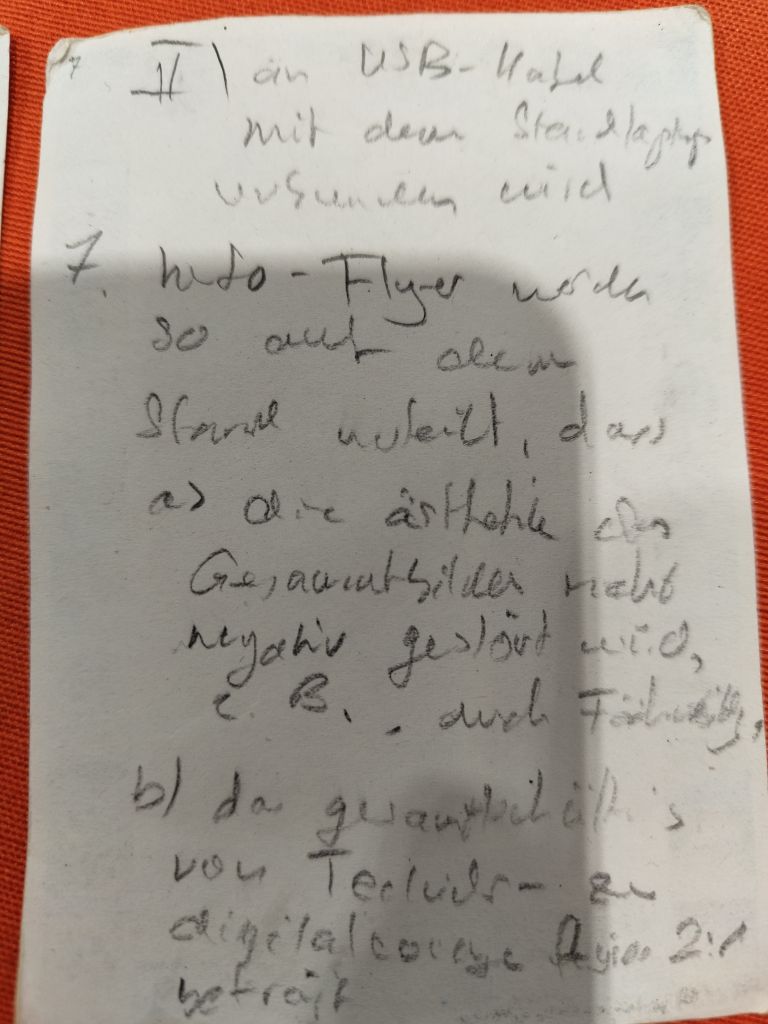 II) ein USB-Kabel
mit dem Standlaptop
verbunden wird
7. Info-Flyer werden
so auf dem
Stand verteilt, dass
a) die ästhetik des
Gesamtbildes nicht
negativ gestört wird,
z. B. durch
b) das gesamtverhältnis
von Technik- zu
digitalcourage 2:1
beträgt